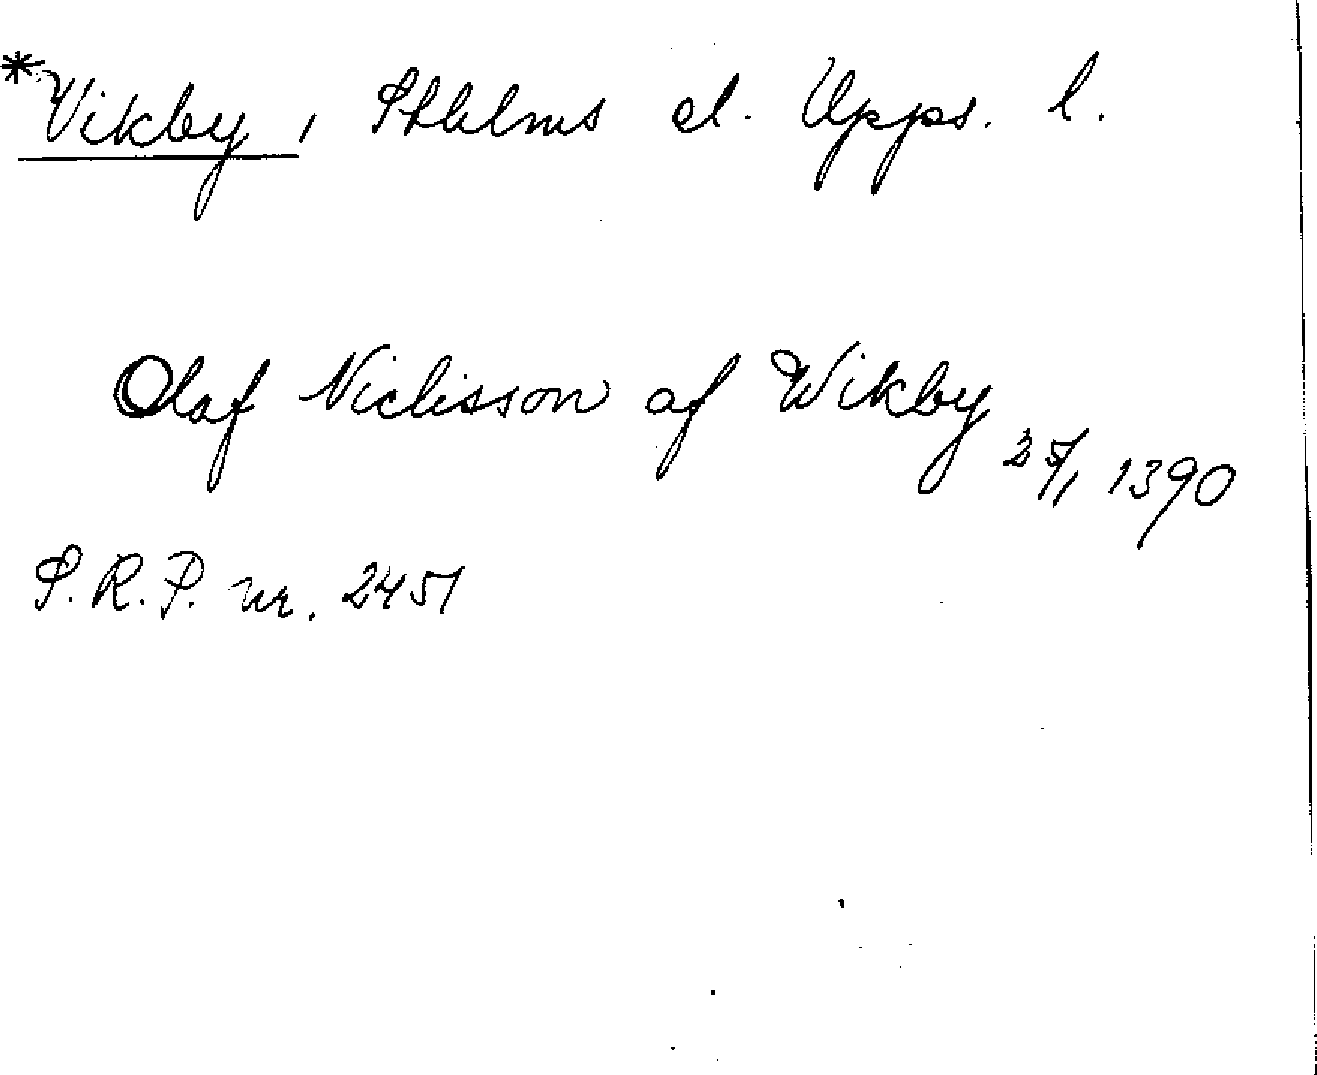 *Vikby, Sthlms el. Upps. l.
Olaf Niclisson af Wikby 25/1 1390
S.R.P. nr. 2451